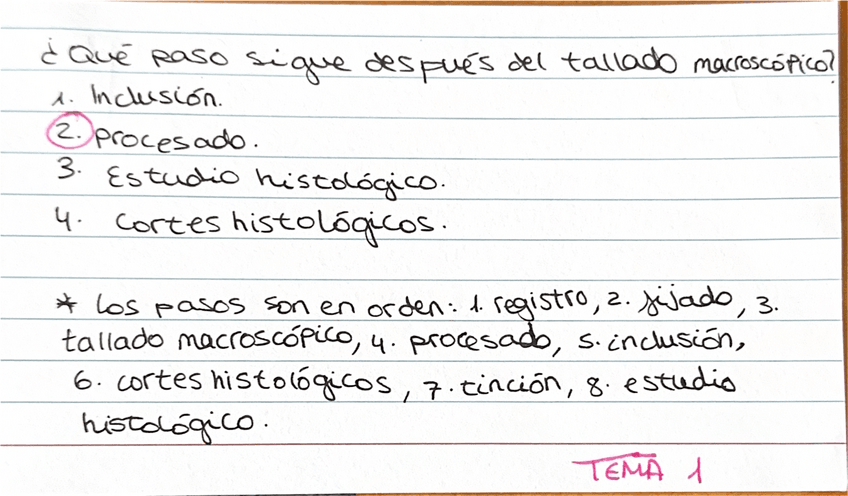 ¿Qué paso sigue después del tallado macroscópico?
1. Inclusión.
2. procesado.
3. Estudio histológico.
4. Cortes histológicos.
* Los pasos son en orden: 1. registro, 2. fijado, 3.
tallado macroscópico, 4. procesado, 5. inclusión,
6. cortes histológicos, 7. tinción, 8. estudio
histológico.
TEMA 1